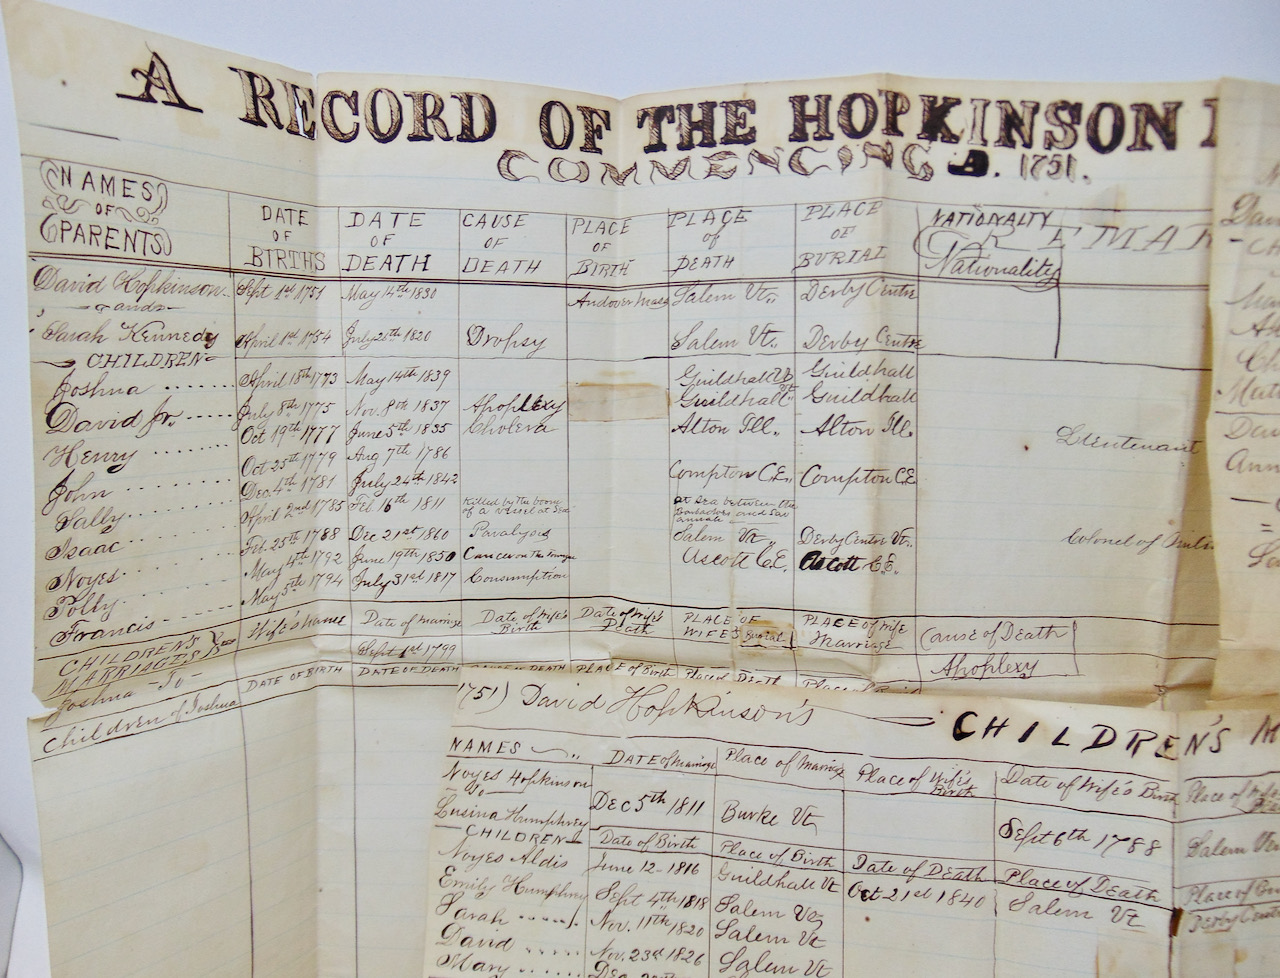 A RECORD OF THE HOPKINSON
COMMENCING A.D. 1751.
NAMES OF PARENTS DATE OF BIRTHS DATE OF DEATH CAUSE OF DEATH PLACE OF BIRTH PLACE of DEATH PLACE OF BURIAL NATIONALITY Nationality
David Hopkinson Sept 1st 1751 May 14th 1830 Andover Mass Salem Vt. Derby Centre
and
Sarah Kennedy April 1st 1754 1820 Dropsy Salem Vt. Derby Centre
CHILDREN
Joshua April 18th 1773 May 14th 1839 Guildhall Vt Guildhall
David Jr. July 8th 1775 Nov. 8th 1837 Apoplexy Guildhall Vt Guildhall
Henry Oct 19th 1777 June 5th 1835 Cholera Alton Ill. Alton Ill. Lieutenant
John Oct 25th 1779 Aug 7th 1786
Sally Dec 4th 1781 July 24th 1842 Compton C.E. Compton C.E
Isaac April 2nd 1785 Feb. 16th 1811 Killed by the boom of a vessel at Sea at Sea between the and
Noyes Feb. 25th 1788 Dec 21st 1860 Paralysis Salem Vt. Derby Centre Vt. Colonel of
Polly May 4th 1792 June 19th 1850 Cancer on the Ascott C.E. Ascott C.E.
Francis May 5th 1794 July 31st 1817 Consumption
CHILDREN'S MARRIAGES Wife's names Date of Marriage Date of Wife's Birth Date of Wife's Death PLACE OF WIFE'S Burial PLACE OF Wife Marriage Cause of Death
Joshua To Sept 1st 1799 Apoplexy
Children of Joshua DATE OF BIRTH DATE OF DEATH CAUSE OF DEATH PLACE of Birth Place of Death Place of
1751) David Hopkinson's CHILDREN'S M
NAMES DATE of Marriage Place of Marriage Place of Wife's Birth Date of Wife's Birth Place of
Noyes Hopkinson
To
Lusina Humphrey Dec 5th 1811 Burke Vt Sept 6th 1788 Salem
CHILDREN Date of Birth Place of Birth Date of Death Place of Death Place of
Noyes Aldis June 12 - 1816 Guildhall Vt Oct 21st 1840 Salem Vt Derby
Emily Humphrey Sept 4th 1818 Salem Vt
Sarah Nov. 11th 1820 Salem Vt
David Nov. 23d 1826 Salem Vt
Mary Dec